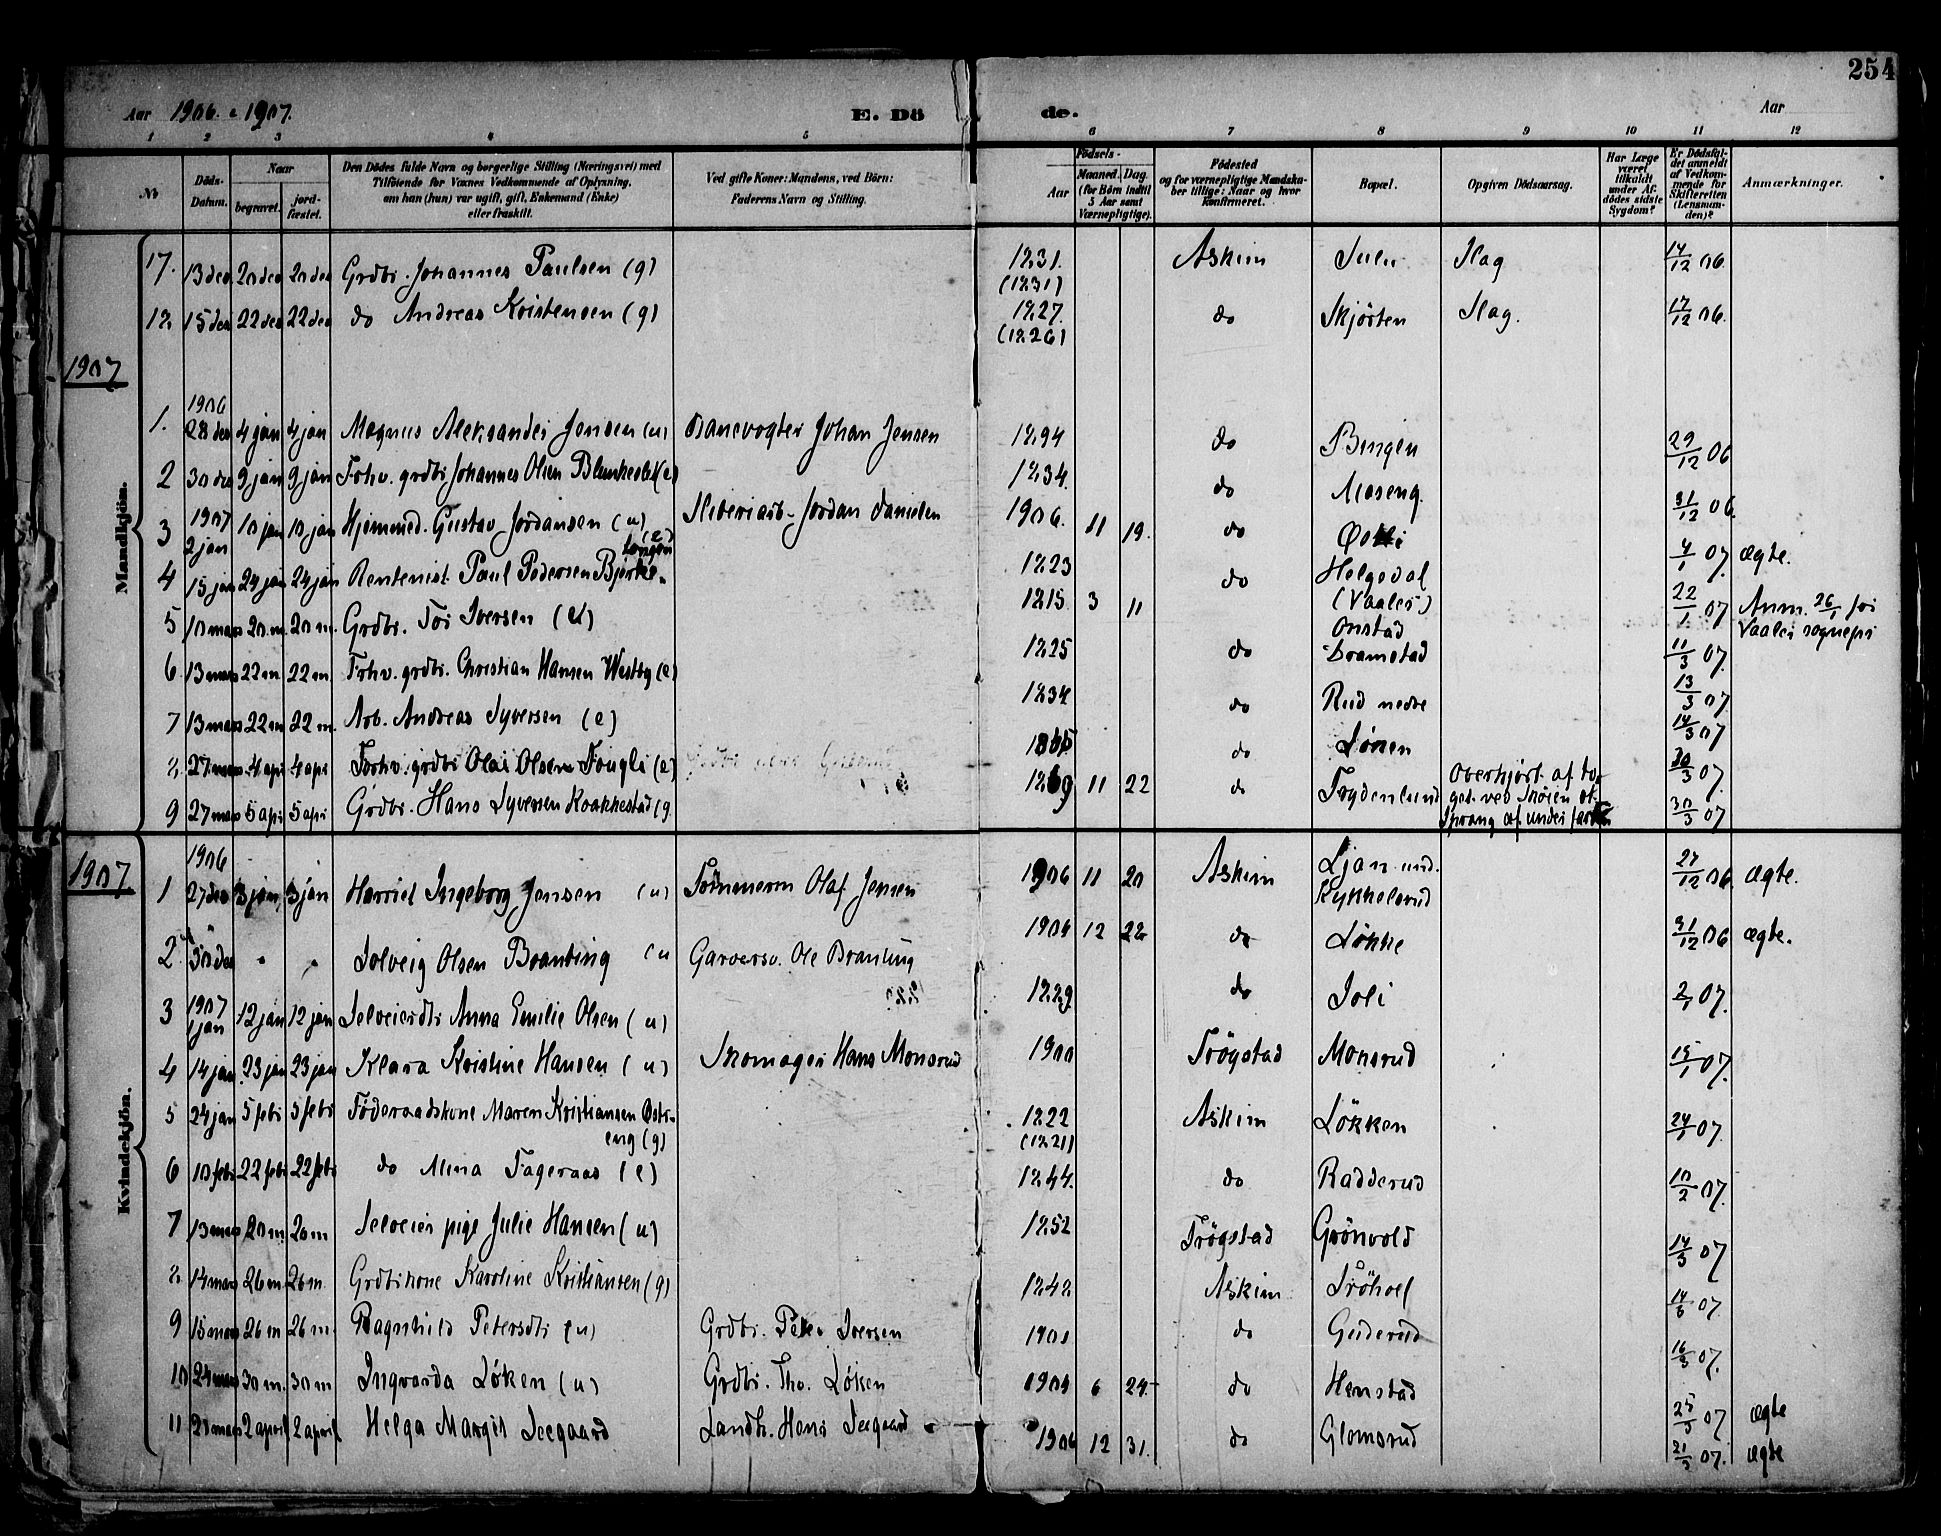 254
Aar 1906 & 1907. E. Dö de. Aar
1 2 3 4 5 6 7 8 9 10 11 12
No Döds-Datum. Naar begravet. jord-fæstet. Den Dödes fulde Navn og borgerlige Stilling (Næringsvei) med Tilföiende for Voxnes Vedkommende af Oplysning, om han (hun) var ugift, gift, Enkemand (Enke) eller fraskilt. Ved gifte Koner: Mandens, ved Börn: Faderens Navn og Stilling. Födsels- Aar Maaned. Dag. (for Börn indtil 5 Aar samt Værnepligtige). Födested og for værnepligtige Mandskaber tillige: Naar og hvor konfirmeret. Bopæl. Opgiven Dödsaarsag. Har Læge været tilkaldt under Afdödes sidste Sygdom? Er Dödsfaldet anmeldt af Vedkommende for Skifteretten (Lensmanden)? Anmærkninger.
Mandkjön.
17. 13 dec 20 dec 20 dec Grdbr. Johannes Paulsen (g) 1831. (1831) Askim Slag 14/12 06.
18 15 dec 22 dec 22 dec do Andreas Kristensen (g) 1827. (1826) do Skjörten Slag. 17/12 06.
1907
1. 1906 28 dec 4 jan 4 jan Magnus Aleksander Jensen (u) Banevogter Johan Jensen 1894 do Bingen 29/12 06
2 30 dec 9 jan 9 jan Forhv. grdbr Johannes Olsen (e) 1834. do Moseng. 31/12 06.
3 1907 2 jan 10 jan 10 jan Hjemmed. Gustav Jordansen (u) Sliberiarb. Jordan Danielsen 1906. 11 19. do 4/1 07. ægte.
4 15 jan 24 jan 24 jan Rentenist Paul Pedersen Bjerke- (e) 1823 do Helgedal (Vaaler) 22/1 07 Anm. 26/1 for Vaaler sognepr
5 10 mars 20 m. 20 m. Grdbr. Tor Iversen 1815 3 11 Onstad 11/3 07.
6. 13 mars 22 m 22 m. Forhv. grdbr. Christian Hansen Westby (e) 1825 do Dramstad 13/3 07.
7 13 mars 22 m 22 m. Arb. Andreas Syversen (e) 1838 do Rud nedre 14/3 07
8. 27 mars 4 apr 4 apr Forhv. grdbr Olai Olsen Fougli (e) do Lönen 30/3 07.
9 27 mars 5 apr 5 apr Grdbr. Hans Syversen Kvakkestad (g 1869 11 22 do Frydenlund Overkjört af toget ved Sprang af under farten 30/3 07
Kvindekjön.
1907
1 1906 27 dec 3 jan 3 jan Harriet Ingeborg Jensen (u) Tömmerm Olaf Jensen 1906 11 20 Askim Ljan und. Kykkelsrud 27/12 06 ægte.
2. 30 dec " " Solveig Olsen Branting (u Garversv. Ole Branting 1904 12 22 do Lökke 31/12 06 ægte.
3 1907 1 jan 12 jan 12 jan Selveierdtr Anna Emilie Olsen (u) 1889 do Soli 2/1 07.
4 14 jan. 23 jan 23 jan Klara Kristine Hansen (u) Skomager Hans Monsrud 1900 Trögstad Monsrud 15/1 07.
5 24 jan 5 febr 5 febr Föderaadskone Maren Kristiansen Östreng (g) 1822 (1821) Askim Lökken 24/1 07.
6 10 febr 22 febr 22 febr do Mina Fageraas (e) 1844. do Radderud 10/2 07.
7 13 mars 20 m 20 m Selveier pige Julie Hansen (u) 1852 Trögstad Grönvold 14/3 07
8. 14 mars 26 m 26 m. Grdbrkone Karoline Kristiansen (g) 1848 Askim 14/3 07.
9 15 mars 26 m 26 m. Ragnhild Petersdtr (u) Grdbr. Peter Iversen 1901 do Guderud 16/3 07.
10 24 mars 30 m. 30 m Ingvarda Löken (u) Grdbr. Tho. Löken 1904 6 24- do Henstad 25/3 07 ægte
11 21 mars 2 april 2 april Helga Margit Seegaard Landh. Hans Seegaard 1906 12 31. do Glomsrud 21/3 07. ægte